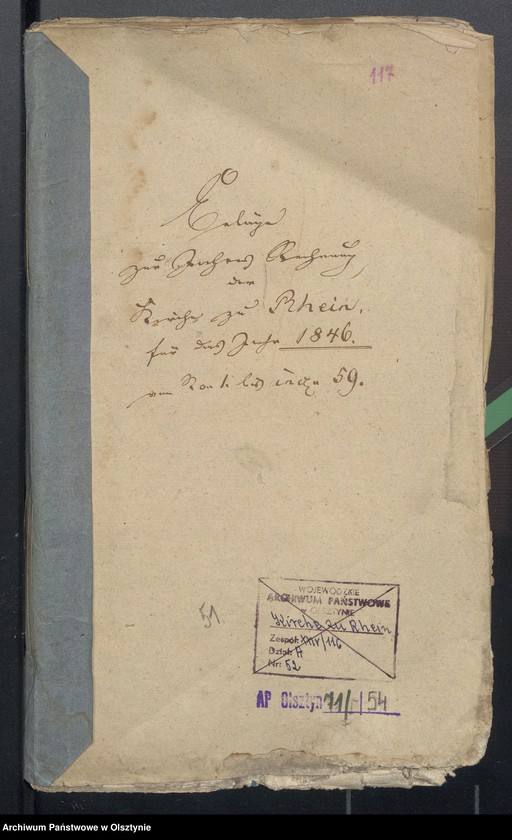 117
Beläge
zur Jahres Rechnung
der
Kirche zu Rhein,
für das Jahr 1846.
von No 1 bis incl. 59.
51
WOJEWÓDZKIE
ARCHIWUM PAŃSTWOWE
w OLSZTYNIE
Kirche zu Rhein
Zespół: XXV/116
Dział: A
Nr: 52
AP Olsztyn 71/-/54
Archiwum Państwowe w Olsztynie